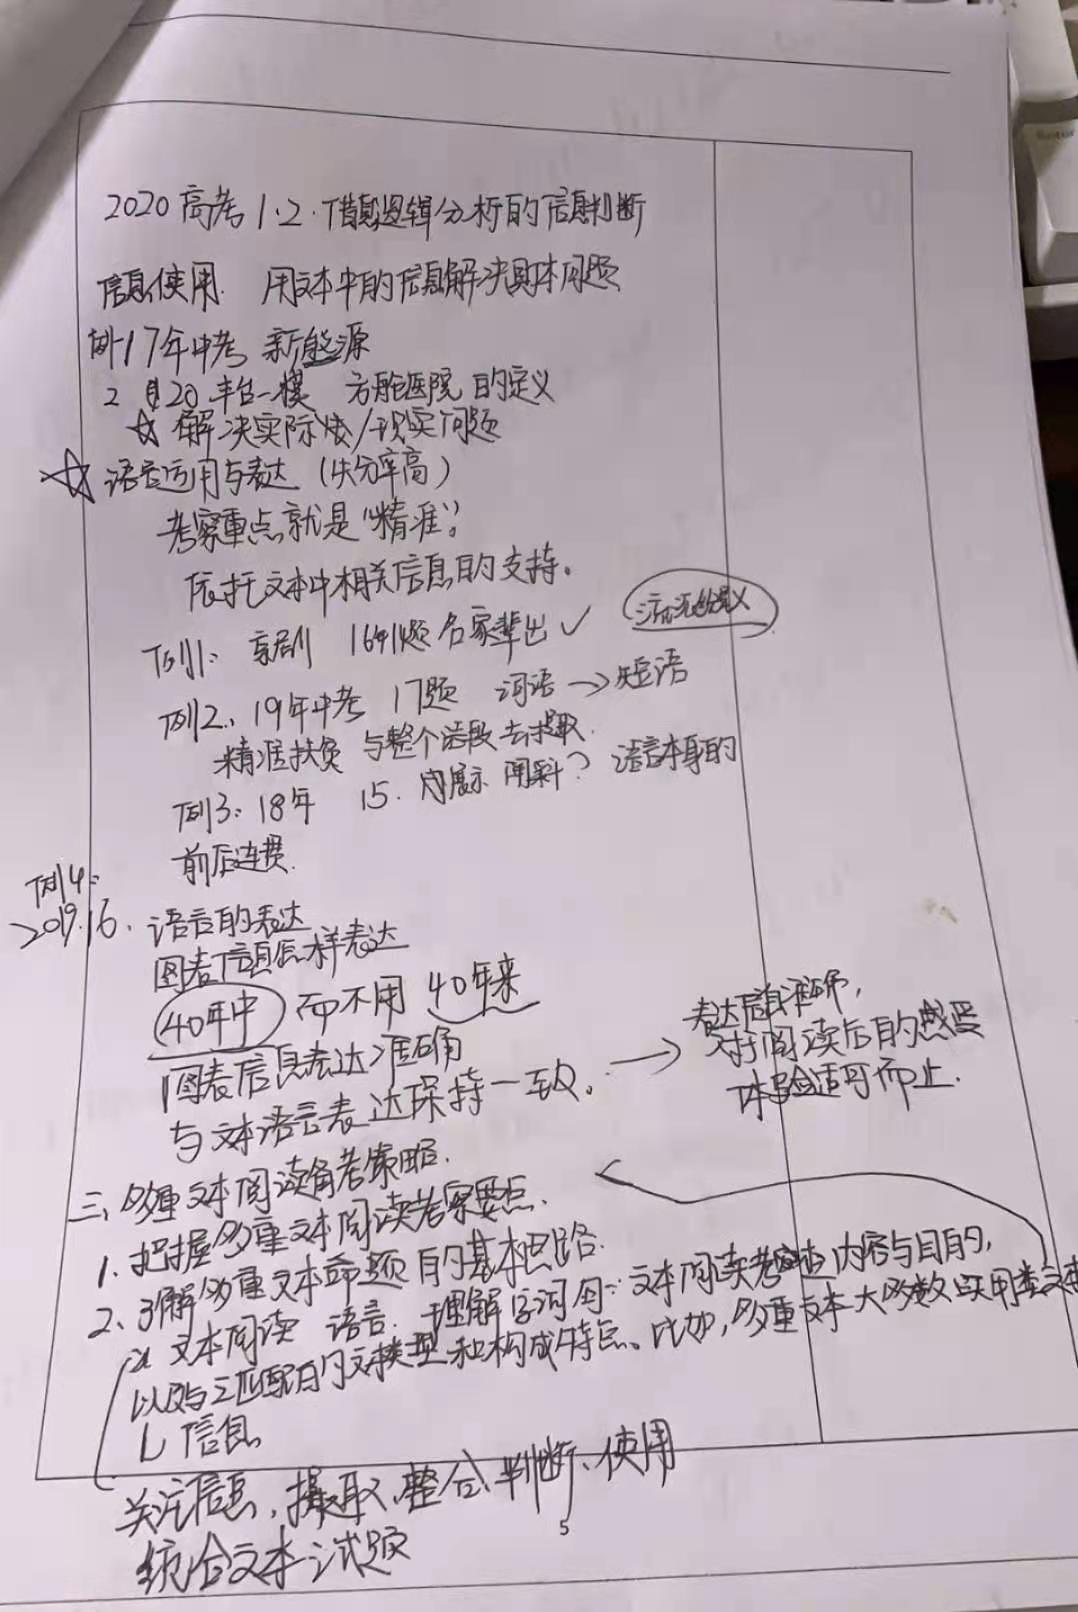 2020高考1.2.借助逻辑分析的信息判断
信息使用. 用文本中的信息解决具体问题
例1 17年中考 新能源
2 20.丰台一模 方舱医院 的定义
☆ 解决实际/现实问题
☆ 语言运用与表达 (失分率高)
考察重点就是"精准"。
依托文本中相关信息的支持。
例1: 京剧 名家辈出 ✓
例2. 19年中考 17题 词语→短语
精准扶贫 与整个语段去提取.
例3: 18年 15. 展示 阐释? 语言本身的
前后连贯.
例4:
2019.16. 语言的表达
图表信息怎样表达
40年中 而不用 40年来
图表信息表达准确
与文本语言表达保持一致. → 表达信息准确,
对于阅读后的感受
体验适可而止.
三、多重文本阅读备考策略.
1. 把握多重文本阅读考察要点.
2、了解多重文本命题的基本思路.
文本阅读 语言. 理解字词句: 文本阅读考查内容与目的,
以及与之匹配的文本类型和构成特点。比如,多重文本大多数实用类文本
信息
关注信息,提取、整合、判断、使用
综合文本试题
5